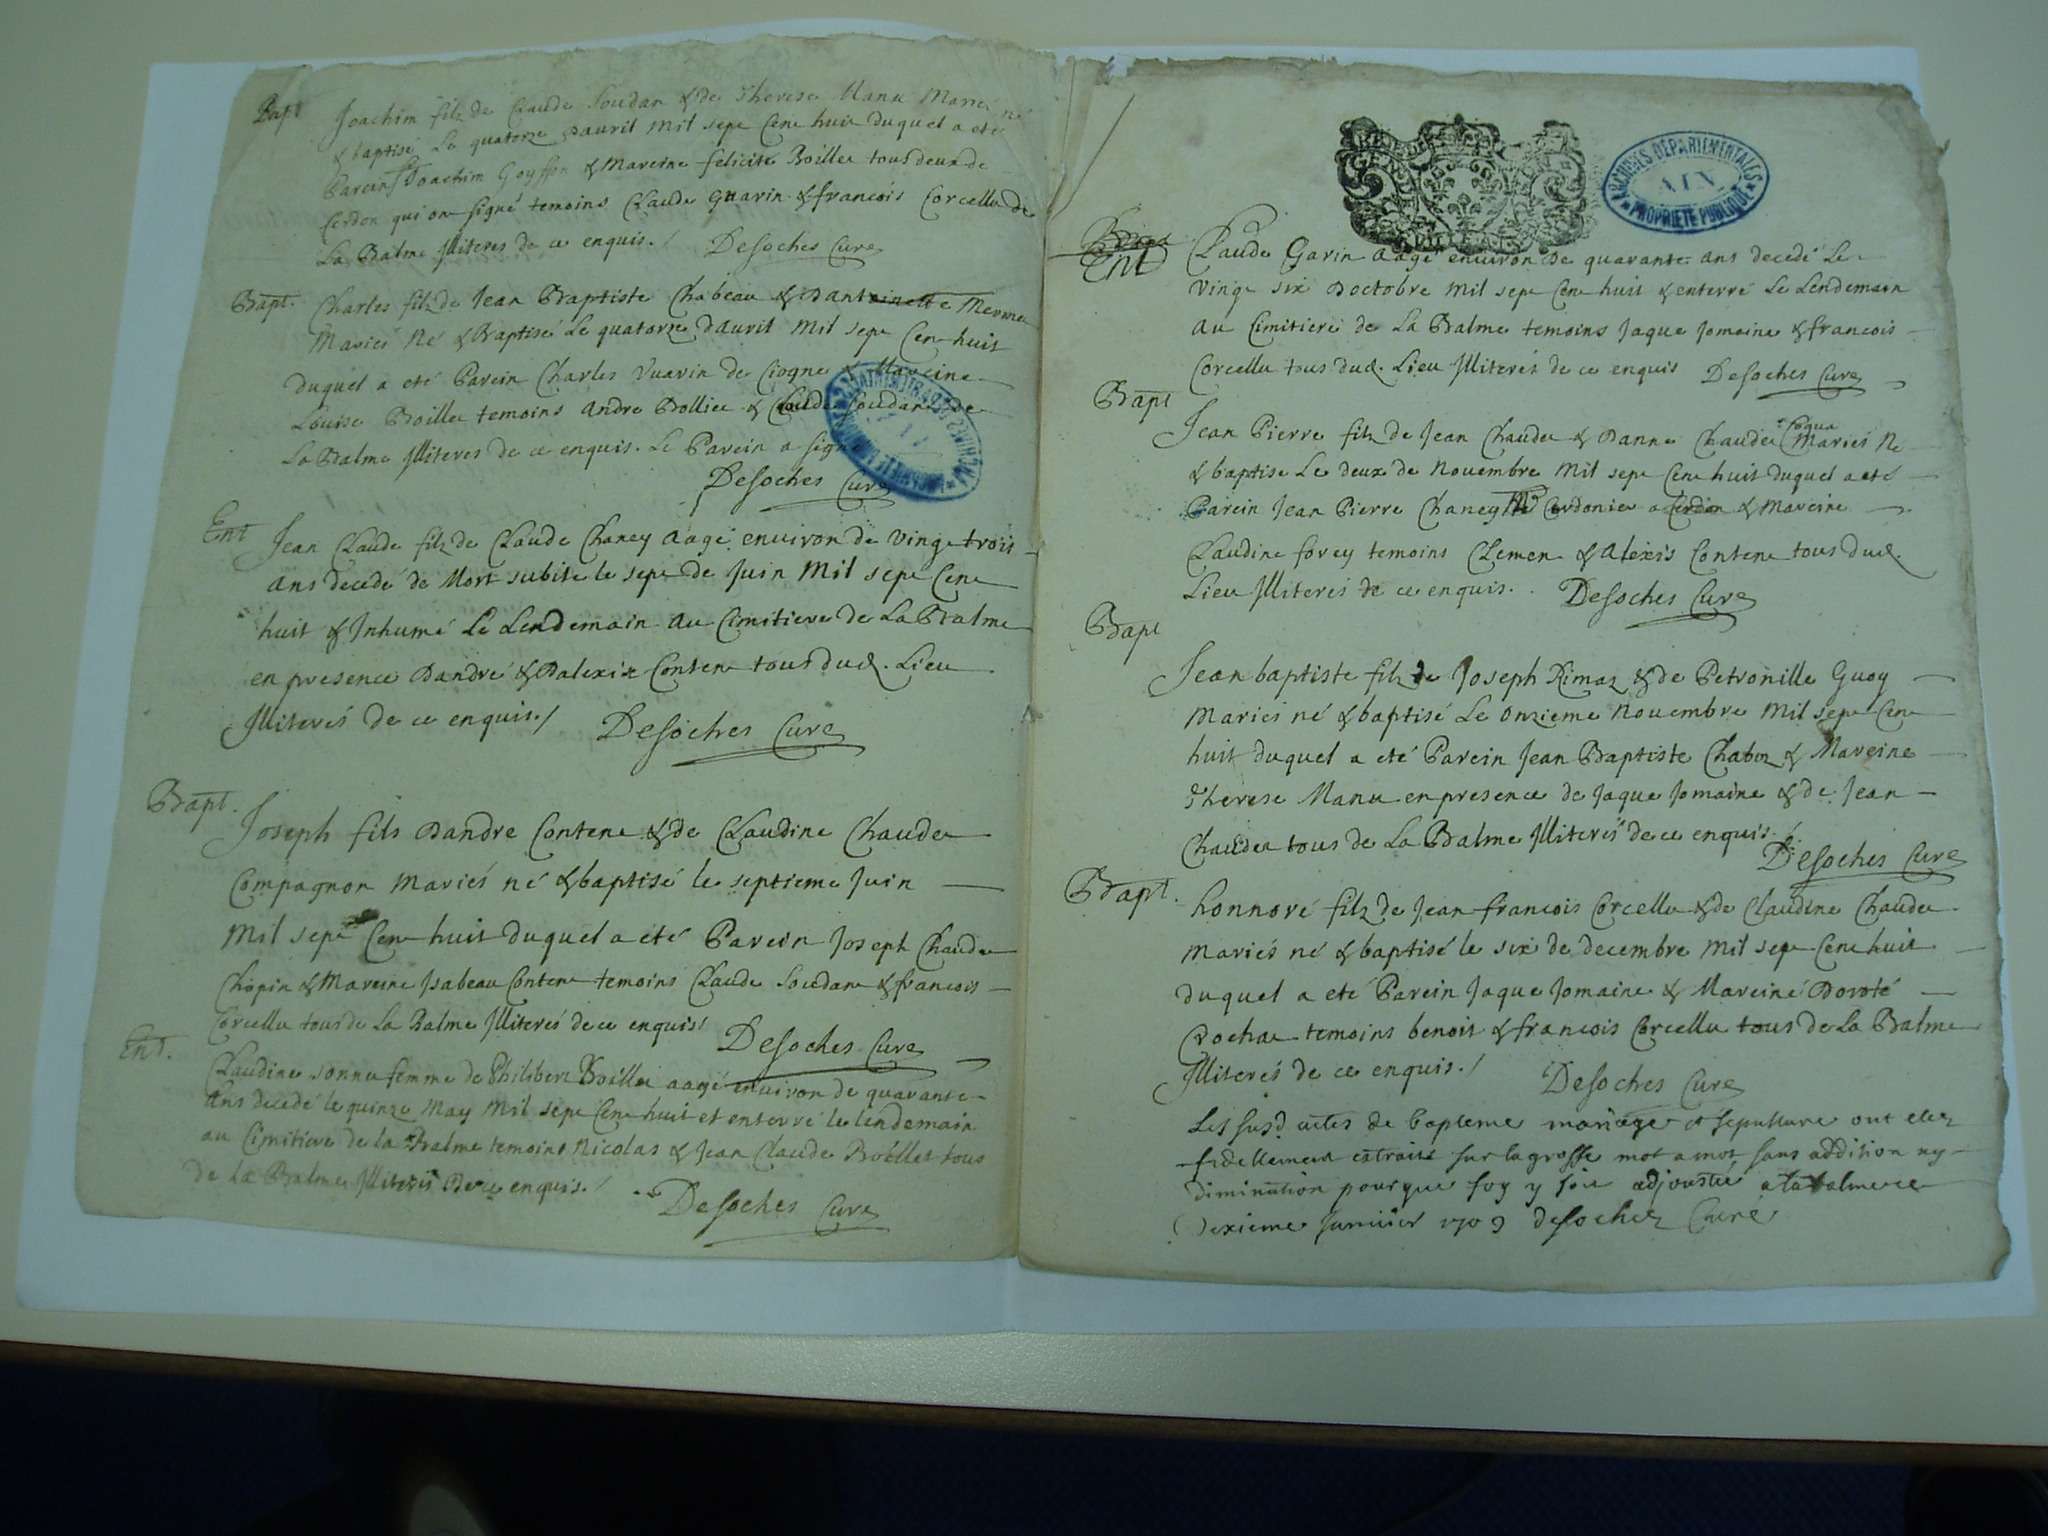 Bapt Joachim filz de Claude Soudan & de Therese Manu Mariés né
& baptisé Le quatorze Dauril Mil sept Cent huit duquel a eté
Parein Joachim Goyffon & Mareine felicité Boillet tous deux de
Cerdon qui on signé temoins Claude Guarin & francois Corcellu de
La Balme Jlliteres de ce enquis./ Desoches Cure
Bapt. Charles filz de Jean Baptiste Chabeau & Dantoinette Mermet
Mariés Né & Baptisé Le quatorze dauril Mil sept Cent huit
duquel a eté Parein Charles Vuarin de Ciogne & Mareine
Louise Boillet temoins andre Bolliet & Claude Soudan de
La Balme Jlliteres de ce enquis. Le Parein a sign
Desoches Cure
Ent Jean Claude filz de Claude Chaney aagé environ de vingt trois
ans decedé de Mort subite le sept de Juin Mil sept Cent
huit & Jnhumé Le Lendemain au Cimitiere de La Balme
en presence Dandré & Dalexix Content tous dud. Lieu
Jlliterés de ce enquis./ Desoches Cure
Bapt. Joseph fils Dandre Content & de Claudine Chaudet
Compagnon mariés né & baptisé le septieme Juin
Mil sept Cent huit duquel a eté Parein Joseph Chaudet
Chopin & Mareine Jsabeau Content temoins Claude Soudan & francois
Corcellu tous de La Balme Jlliterés de ce enquis/
Desoches Cure
Ent. Claudine sonnu femme de Philibert Boillet aagé environ de quarante
ans decedé le quinze May Mil sept Cent huit et enterré le lendemain
au Cimitiere de la Balme temoins Nicolas & Jean Claude Boillet tous
de la Balme Jlliteris De ce enquis./
Desoches Cure
GEN
ARCHIVES DÉPARTEMENTALES
AIN
PROPRIÉTÉ PUBLIQUE
Ent Claude Garin aagé environ de quarante ans decedé Le
vingt six Doctobre Mil sept Cent huit & enterré Le Lendemain
au Cimitiere de La Balme temoins Jaque Jomaine & francois
Corcellu tous dud. Lieu Jlliterés de ce enquis Desoches Cure
Bapt
Jean Pierre filz de Jean Chaudet & Danne Chaudet Mariés Né
& baptisé Le deux de Novembre Mil sept Cent huit duquel a eté
Parein Jean Pierre Chaney Me Cordonier a Cerdon & Mareine
Claudine forey temoins Clement & alexis Content tous dud.
Lieu Jlliterés de ce enquis. Desoches Cure
Bapt
Jean baptiste filz de Joseph Rimaz & de Petronille Guoy
Mariés né & baptisé Le onzieme Nouembre Mil sept Cent
huit duquel a eté Parein Jean Baptiste Chaboz & Mareine
Therese Manu en presence de Jaque Jomaine & de Jean
Chaudet tous de La Balme Jlliterés de ce enquis./
Desoches Cure
Bapt. honnoré filz de Jean francois Corcellu & de Claudine Chaudet
Mariés né & baptisé le six de decembre Mil sept Cent huit
duquel a eté Parein Jaque Jomaine & Mareine Doroté
Rochat temoins benoit & francois Corcellu tous de La Balme
Jlliterés de ce enquis./ Desoches Cure
Les susd. actes de bapteme mariage et sepulture ont eter
fidellement extraité sur la grosse mot a mot sans addition ny
diminution pour que foy y soit adjousteé a la balme ce
dexieme Januier 1709 desoches Curé